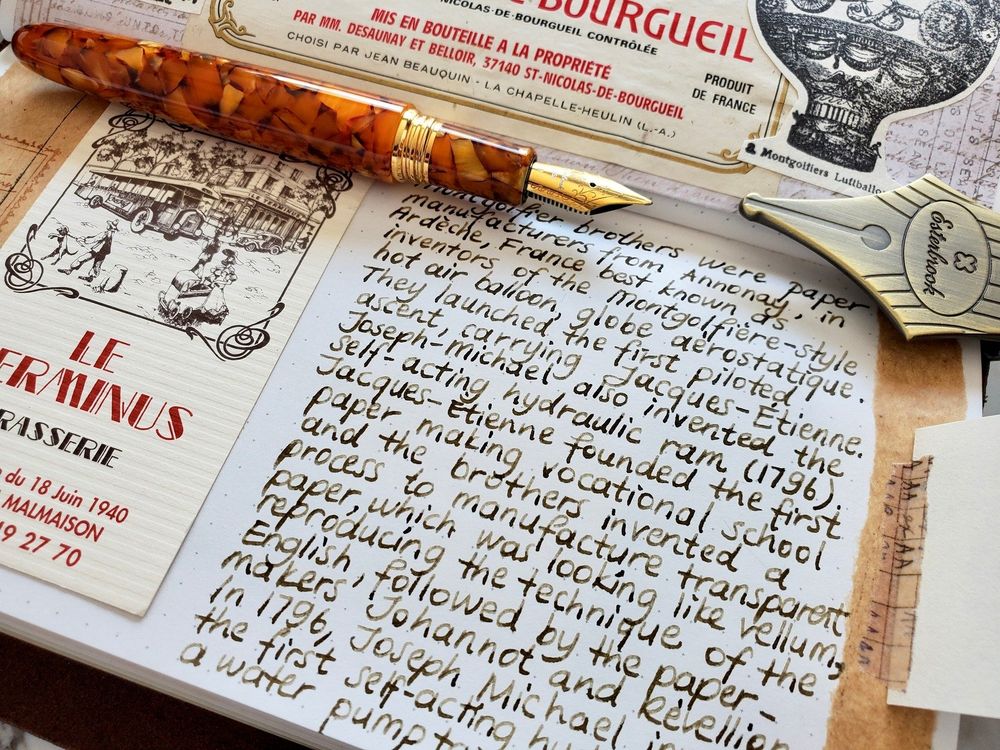 BOURGUEIL
NICOLAS-DE-BOURGUEIL CONTRÔLÉE
MIS EN BOUTEILLE A LA PROPRIÉTÉ
PAR MM. DESAUNAY ET BELLOIR, 37140 ST-NICOLAS-DE-BOURGUEIL
CHOISI PAR JEAN BEAUQUIN - LA CHAPELLE-HEULIN (L.-A.)
PRODUIT
DE FRANCE
& Montgolfiers Luftballo
Esterbrook
LE
ERMINUS
BRASSERIE
du 18 Juin 1940
MALMAISON
49 27 70
Montgolfier brothers were paper
manufacturers from Annonay, in
Ardèche, France best known as
inventors of the Montgolfière-style
hot air balloon, globe aérostatique.
They launched the first piloted
ascent, carrying Jacques-Étienne.
Joseph-michael also invented the
self-acting hydraulic ram (1796),
Jacques-Étienne founded the first
paper making vocational school
and the brothers invented a
process to manufacture transparent
paper, which was looking like vellum,
reproducing the technique of the
English, followed by the paper-
makers Johannot and Réveillion
In 1796, Joseph Michael in
the first self-acting hy
a water pump